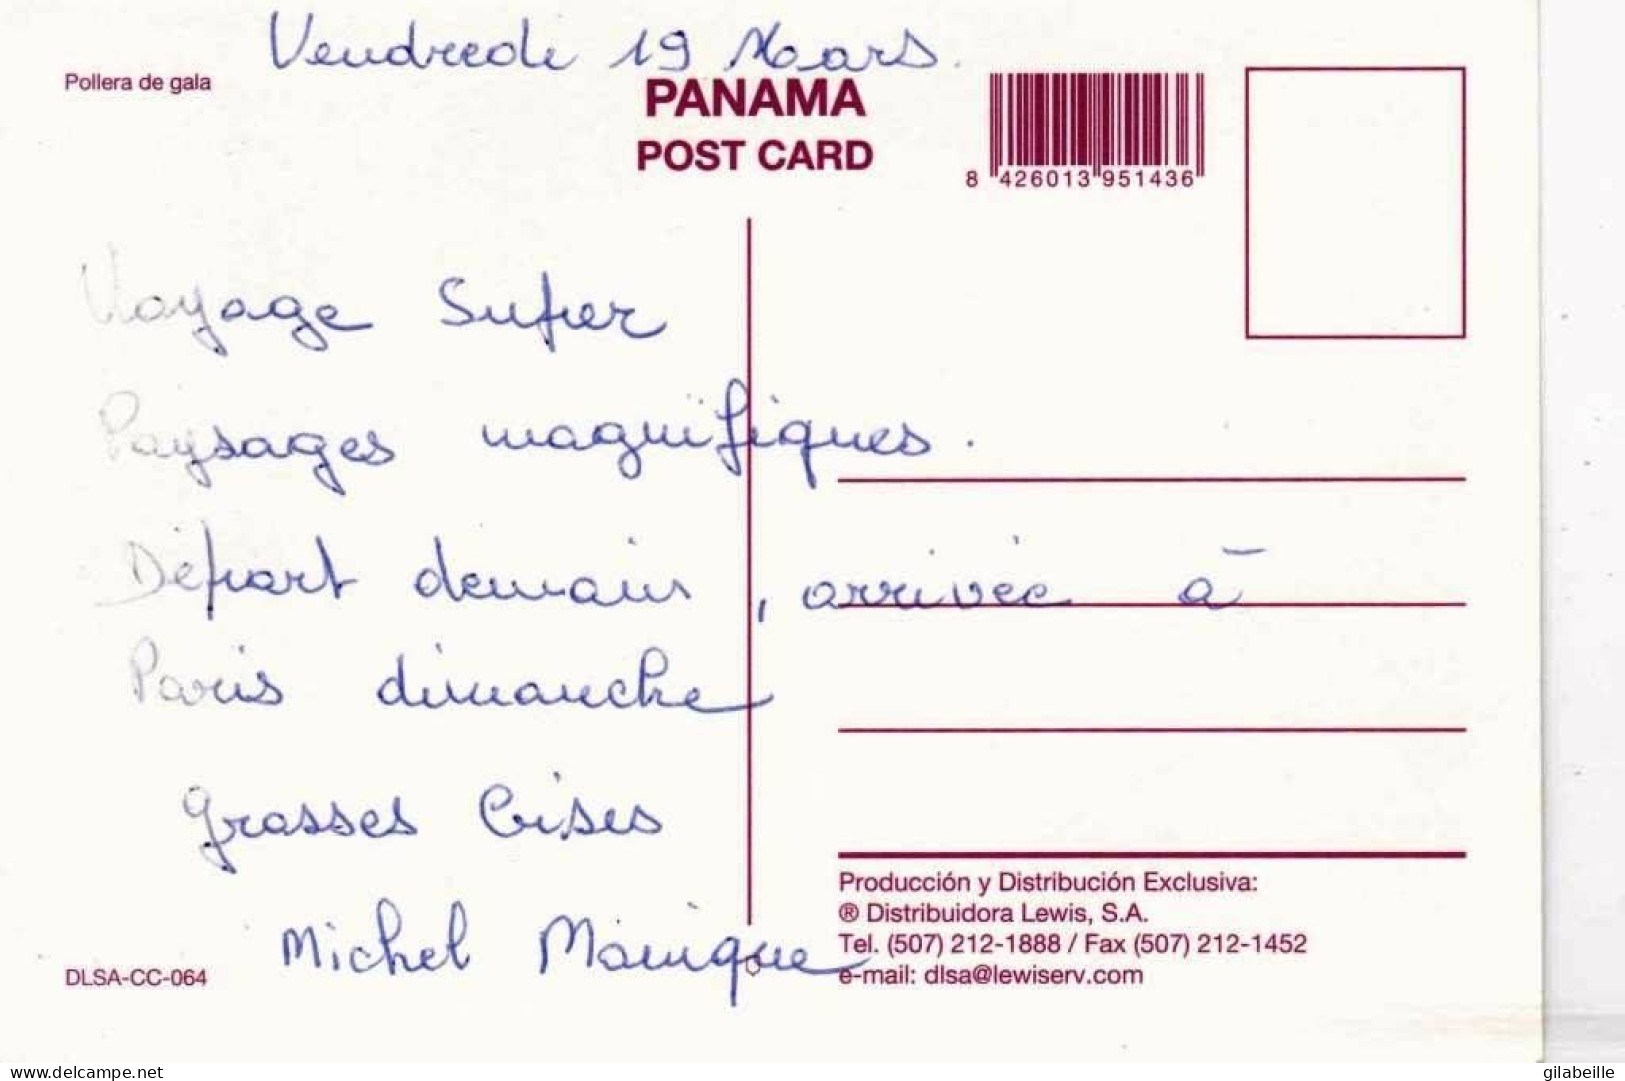 Vendredi 19 Mars.
Pollera de gala
PANAMA
POST CARD
8 426013 951436
Voyage Super
Paysages magnifiques.
Départ demain, arrivée à
Paris dimanche
grosses bises
Michel Monique
Producción y Distribución Exclusiva:
® Distribuidora Lewis, S.A.
Tel. (507) 212-1888 / Fax (507) 212-1452
e-mail: dlsa@lewiserv.com
DLSA-CC-064
www.delcampe.net
gilabeille